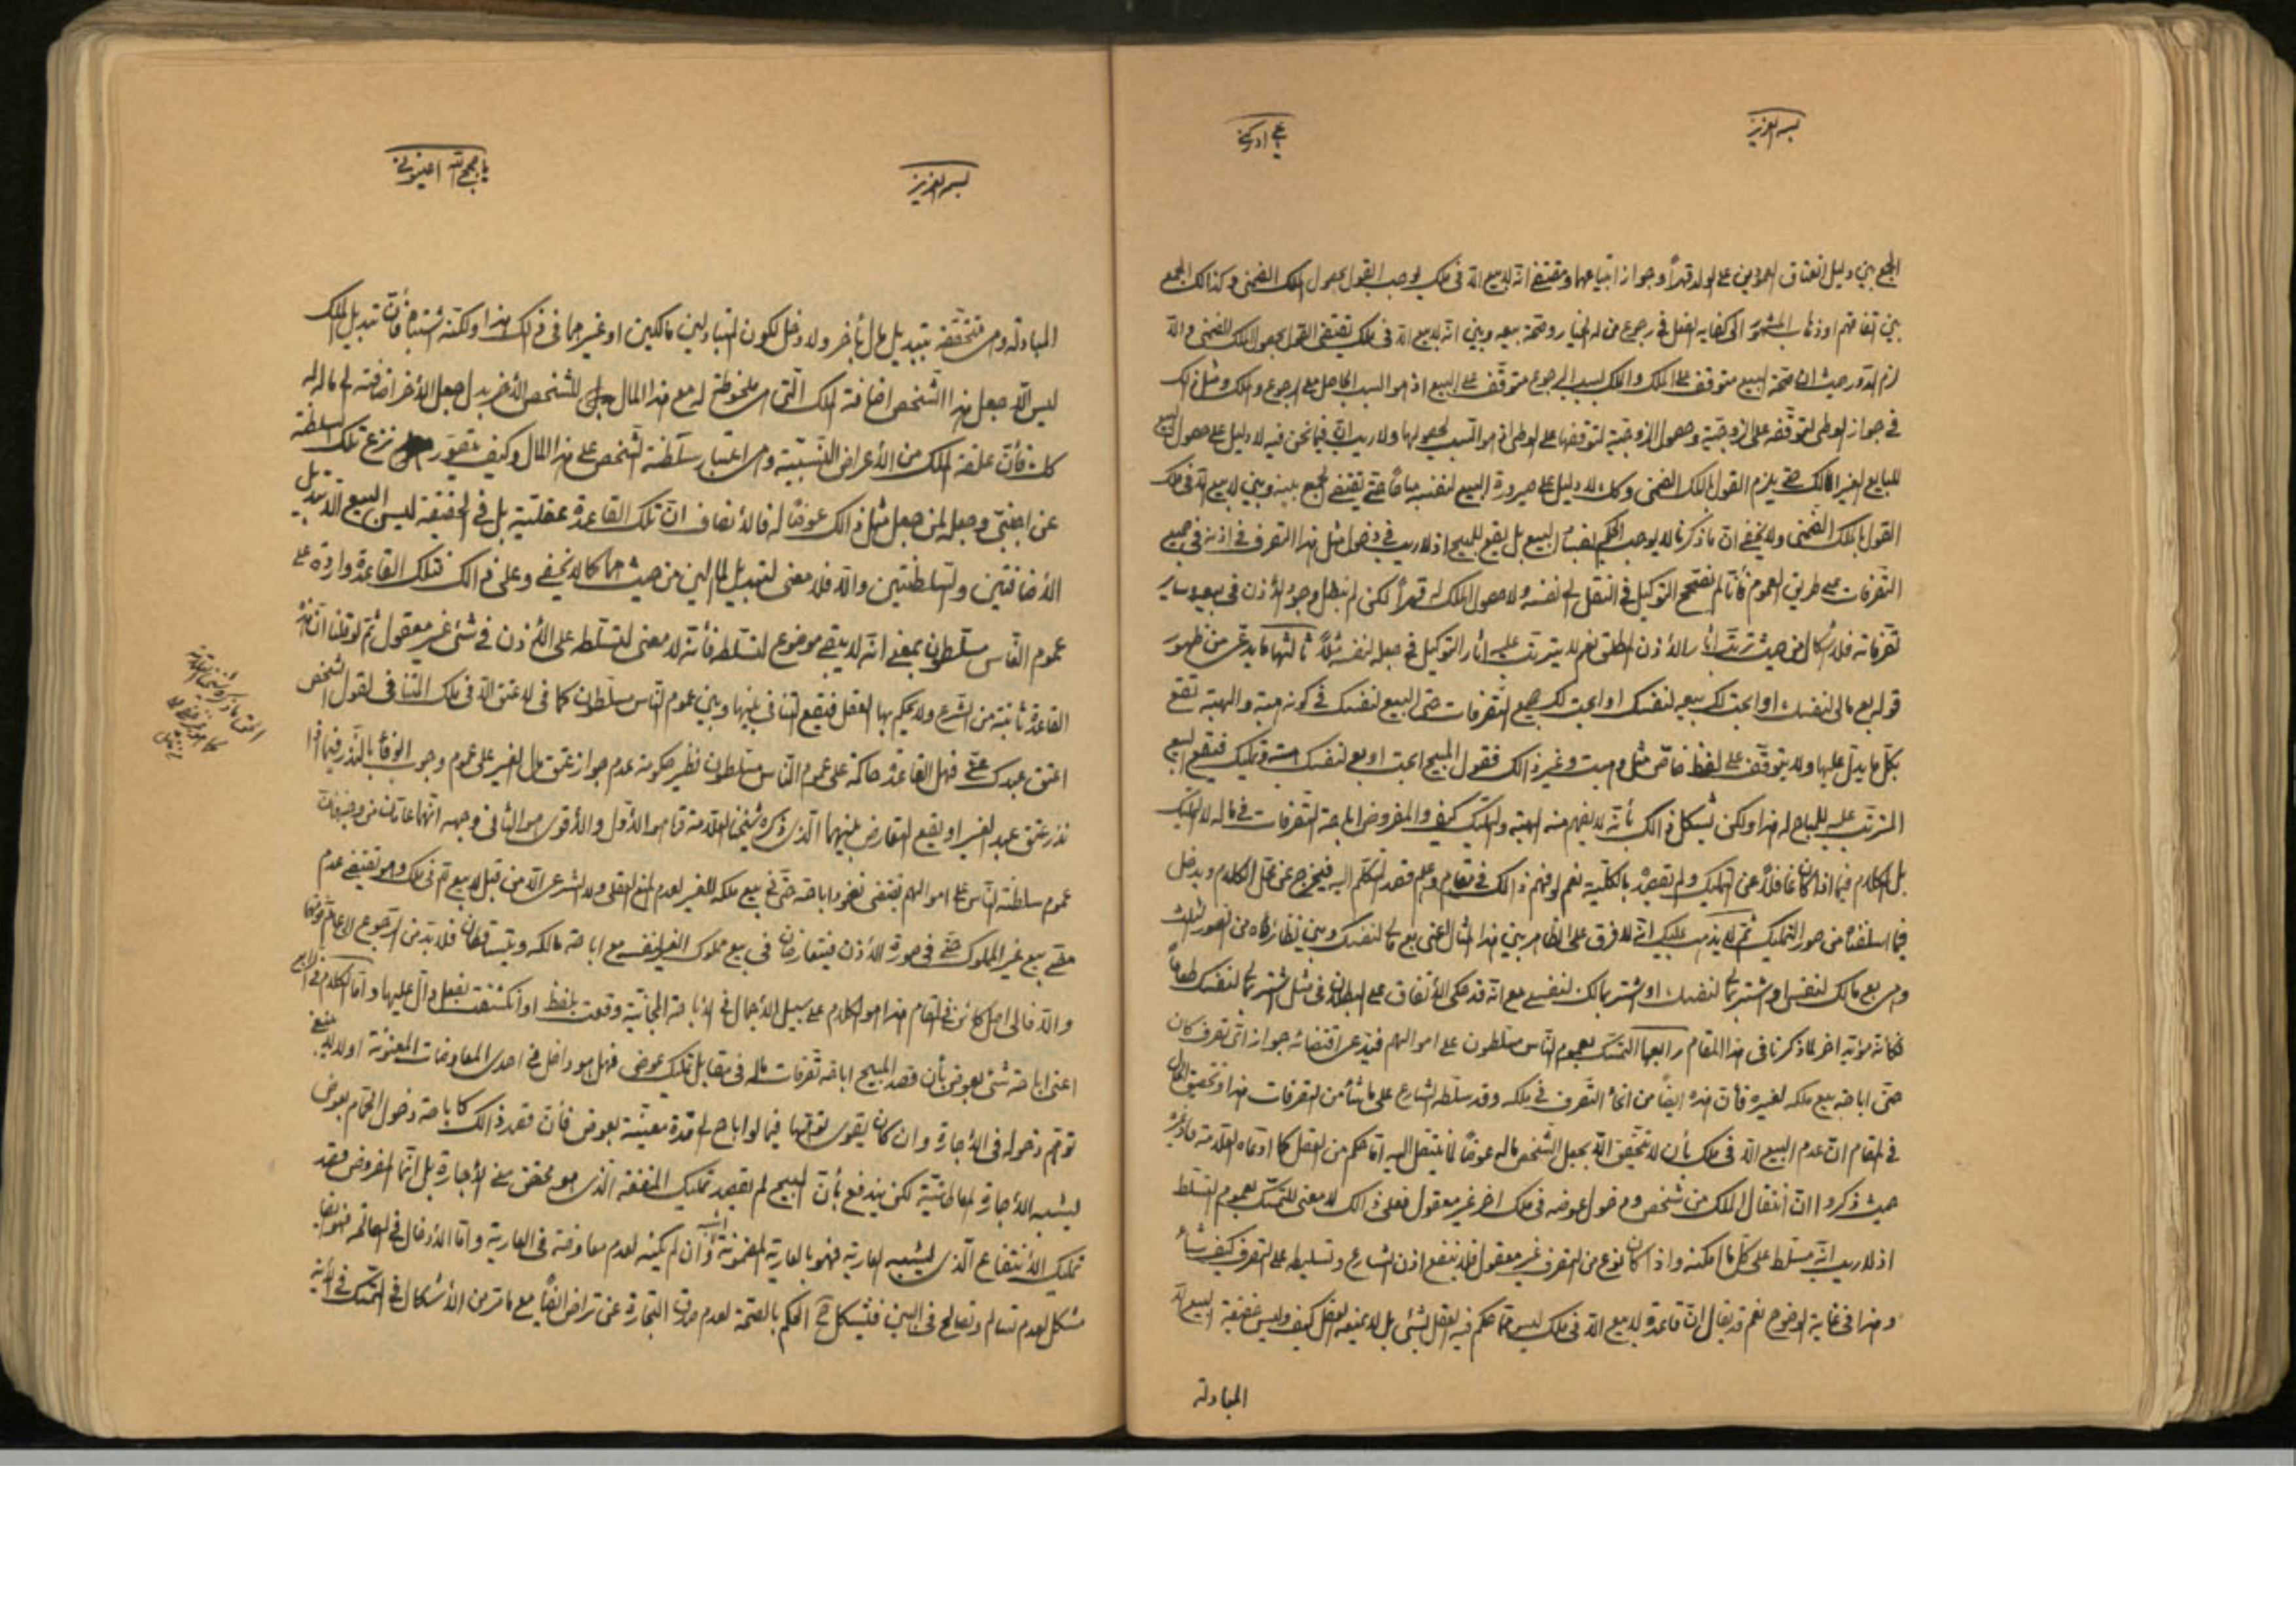 بسمه العزيز
الجمع بين دليل انعتاق العمودين على الولد قهراً وجواز ابتياعهما ومقتضى انه لا بيع الا في ملك يوجب القول بحصول الملك الضمنى وكذلك الجمع
بين اذهاب المشهور الى كفاية الفعل في رجوع من له الخيار وصحة بيعه وبين انه لا بيع الا في ملك يقتضى القول بحصول الملك الضمنى والا
لزم الدور حيث ان صحة البيع متوقف على الملك والملك بسبب الرجوع متوقف على البيع اذ هو السبب الحاصل معه الرجوع والملك ومثل ذلك
في جواز الوطى لتوقفه على الزوجية وحصول الزوجية لتوقفها على الوطى اذ هو السبب لحصولها ولا ريب ان فيما نحن فيه لا دليل على حصول البيع
للبايع لغير المالك حتى يلزم القول بالملك الضمنى وكك لا دليل على صيرورة البيع لنفسه مباحاً حتى يقتضى الجمع بينه وبين لا بيع الا في ملك
القول بالملك الضمنى ولا يخفى ان ما ذكرنا لا يوجب الحكم بفساد البيع بل يقع للمبيح اذ لا ريب في دخول مثل هذا التصرف في اذنه في جميع
التصرفات على طريق العموم فأنا لم نصحح التوكيل في النقل الى نفسه ولا حصول الملك له قهراً لكن لم نبطل وجود الأذن في بيعه وساير
تصرفاته فلا اشكال من حيث ترتب اثار الأذن المطلق نعم لا يترتب عليه اثار التوكيل في جعله لنفسه مثلاً ثالثها ما يدعى من ظهور
قوله بع مالى لنفسك او ابحت لك بيعه لنفسك او ابحت لك جميع التصرفات حتى البيع لنفسك في كونه هبة والهبة تقع
بكل ما يدل عليها ولا يتوقف على لفظ خاص مثل وهبت وغير ذلك فقول المبيح ابحت او بع لنفسك هبة وتمليك فيقع البيع
المترتب عليه للمباح له هذا ولكن يشكل ذالك بأنه لا يفهم منه الهبة والتمليك كيف والمفروض اباحة التصرفات في ماله لا التمليك
بل الكلام فيما اذا كان غافلاً عن التمليك ولم يقصده بالكلية نعم لو فهم ذالك في مقام وعلم قصد المتكلم اليه فيخرج عن محل الكلام ويدخل
فيما اسلفناه من صور التمليك ثم لا يذهب عليك انه لا فرق على الظاهر بين هذا المثال اعنى بع مالى لنفسك وبين نظائره من الصور الثلث
وهى بع مالك لنفسى او اشتر بمالى لنفسك او اشتر بمالك لنفسى مع انه قد حكى الأتفاق على البطلان في مثل اشتر بمالى لنفسك طعاماً
فكأنه مؤيد اخر لما ذكرنا في هذا المقام رابعها التمسك بعموم الناس مسلطون على اموالهم فيدعى اقتضائه جواز اى تصرف كان
حتى اباحة بيع ملكه لغيره فأن هذه ايضاً من انحاء التصرف في ملكه وقد سلطه الشارع على ما شاء من التصرفات هذا وتحقيق الحال
في المقام ان عدم البيع الا في ملك بأن لا يتحقق الا بجعل الشخص ماله عوضاً لما ينتقل اليه اما حكم من العقل كما ادعاه العلامة وغيره
حيث ذكروا ان انتقال الملك من شخص ودخول عوضه في ملك اخر غير معقول فعلى ذالك لا معنى للتمسك بعموم التسلط
اذ لا ريب انه مسلط على كل ما امكنه واذا كان نوع من التصرف غير معقول فلا ينفع اذن الشارع وتسليطه على التصرف كيف شاء
وهذا في غاية الوضوح نعم قد يقال ان قاعدة لا بيع الا في ملك ليس مما حكم فيه العقل بشئ بل لا يمنعه العقل كيف وليس حقيقة البيع الا
المبادلة
بسمه العزيز
يا حجج الله اعينونى
المبادلة وهى متحققة بتبديل مال بأخر ولا دخل لكون المتبادلين مالكين او غيرهما في ذلك هذا ولكنه اشتباه فأن تبديل الملك
ليس الا جعل هذا الشخص اضافة الملك التى هى ملحوظة له مع هذا المال للشخص الأخر بدل جعل الأخر اضافته الى ماله له
كك فأن علقة الملك من الأعراض النسبية وهى اعتبار سلطنة الشخص على هذا المال وكيف يتصور نزع تلك السلطنة
عن اجنبى وجعله لمن جعل مثل ذالك عوضاً له فالأنصاف ان تلك القاعدة عقلية بل في الحقيقة ليس البيع الا تبديل
الأضافتين والسلطنتين والا فلا معنى لتبديل المالين من حيث هما كما لا يخفى وعلى ذالك فتلك القاعدة واردة على
عموم الناس مسلطون بمعنى انه لا يبقى موضوع للتسلط فأنه لا معنى للتسلط على الأذن في شئ غير معقول ثم لو قلنا ان هذه
القاعدة ثابتة من الشرع ولا يحكم بها العقل فيقع التنافى بينها وبين عموم الناس مسلطون كما في لا عتق الا في ملك التنافى لقول الشخص
اعتق عبدك عنى فهل القاعدة حاكمة على عموم الناس مسلطون نظير حكومة عدم جواز عتق مال الغير على عموم وجوب الوفاء بالنذر فيما اذا
نذر عتق عبد الغير او يقع التعارض بينهما الذى ذكره شيخنا العلامة قدس هو الأول والأقوى هو الثانى وجهه انهما عامان من وجه فان
عموم سلطنة الناس على اموالهم يقتضى نفوذ اباحة حتى في بيع ملكه للغير لعدم المنع العقلى ولا الشرعى الا من قبل لا بيع الا في ملك وهو يقتضى عدم
صحة بيع غير المملوك حتى في صورة الأذن فيتعارضان في بيع مملوك الغير لنفسه مع اباحة مالكه ويتساقطان فلا بد من الرجوع الى عام فوقهما
والا فالى اصل كائن في المقام هذا هو الكلام على سبيل الأجمال في الأباحة المجانية وقعت بلفظ او انكشفت بفعل دال عليها واما الكلام في الرابع
اعنى اباحة شئ بعوض بأن قصد المبيح اباحة تصرفات ماله في مقابل تملك عوض فهل هو داخل في احدى المعاوضات المعنونة او لا
توهم دخوله في الأجارة وان كان يقوى توهمها فيما لو اباح له مدة معينة بعوض فأن قصد ذالك كاباحة دخول الحمام بعوض
ليشبه الأجارة المعاطاتية لكن يندفع بأن المبيح لم يقصد تمليك المنفعة الذى هو محقق معنى الأجارة بل انما المفروض قصد
تمليك الأنتفاع الذى يشبه العارية فهو بالعارية المضمونة اشبه وان لم يكنه لعدم معاوضة في العارية واما الأدخال في المصالحة فهو ايضا
مشكل لعدم تسالم وتصالح في البين فيشكل ح الحكم بالصحة لعدم صدق التجارة عن تراض ايضاً مع ما مر من الأشكال في التمسك في الأية